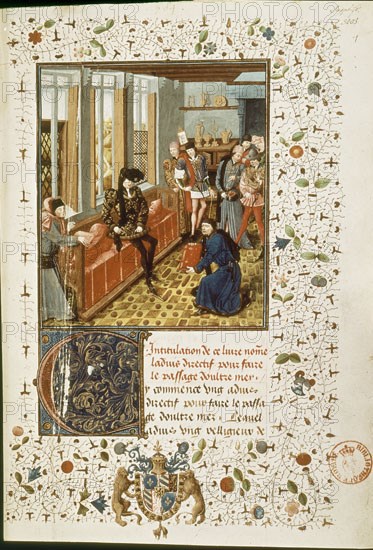 Intitulation de ce livre nome
ladvis directif pour faire
le passage doultre mer
y commence ung advis
directif pour faire le passa
ge doultre mer. Lequel
advis ung religieux de
PHOTO12